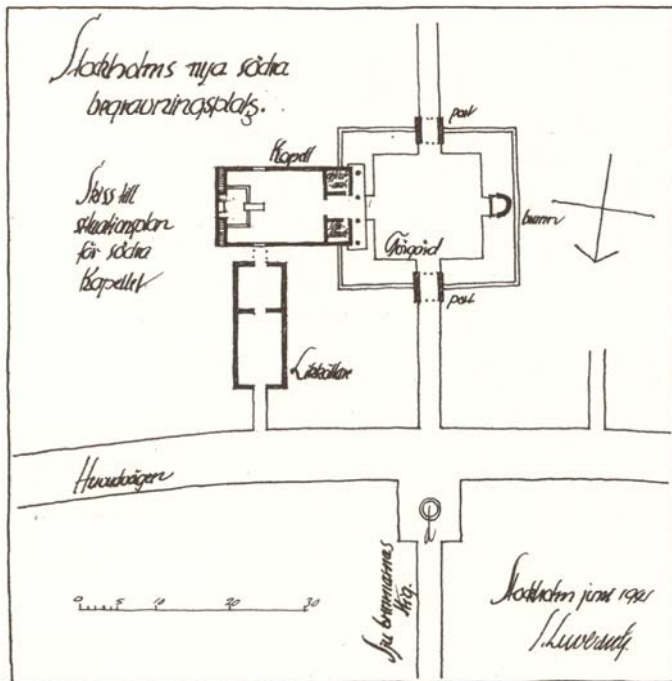 Stockholms nya södra
begravningsplats.
Skiss till
situationsplan
för södra
Kapellet
Kapell
port
brunn
Förgård
port
Likkällare
Huvudvägen
Sju brunnarnas
stig.
0 5 10 20 30
Stockholm juni 1921
S. Lewerentz.